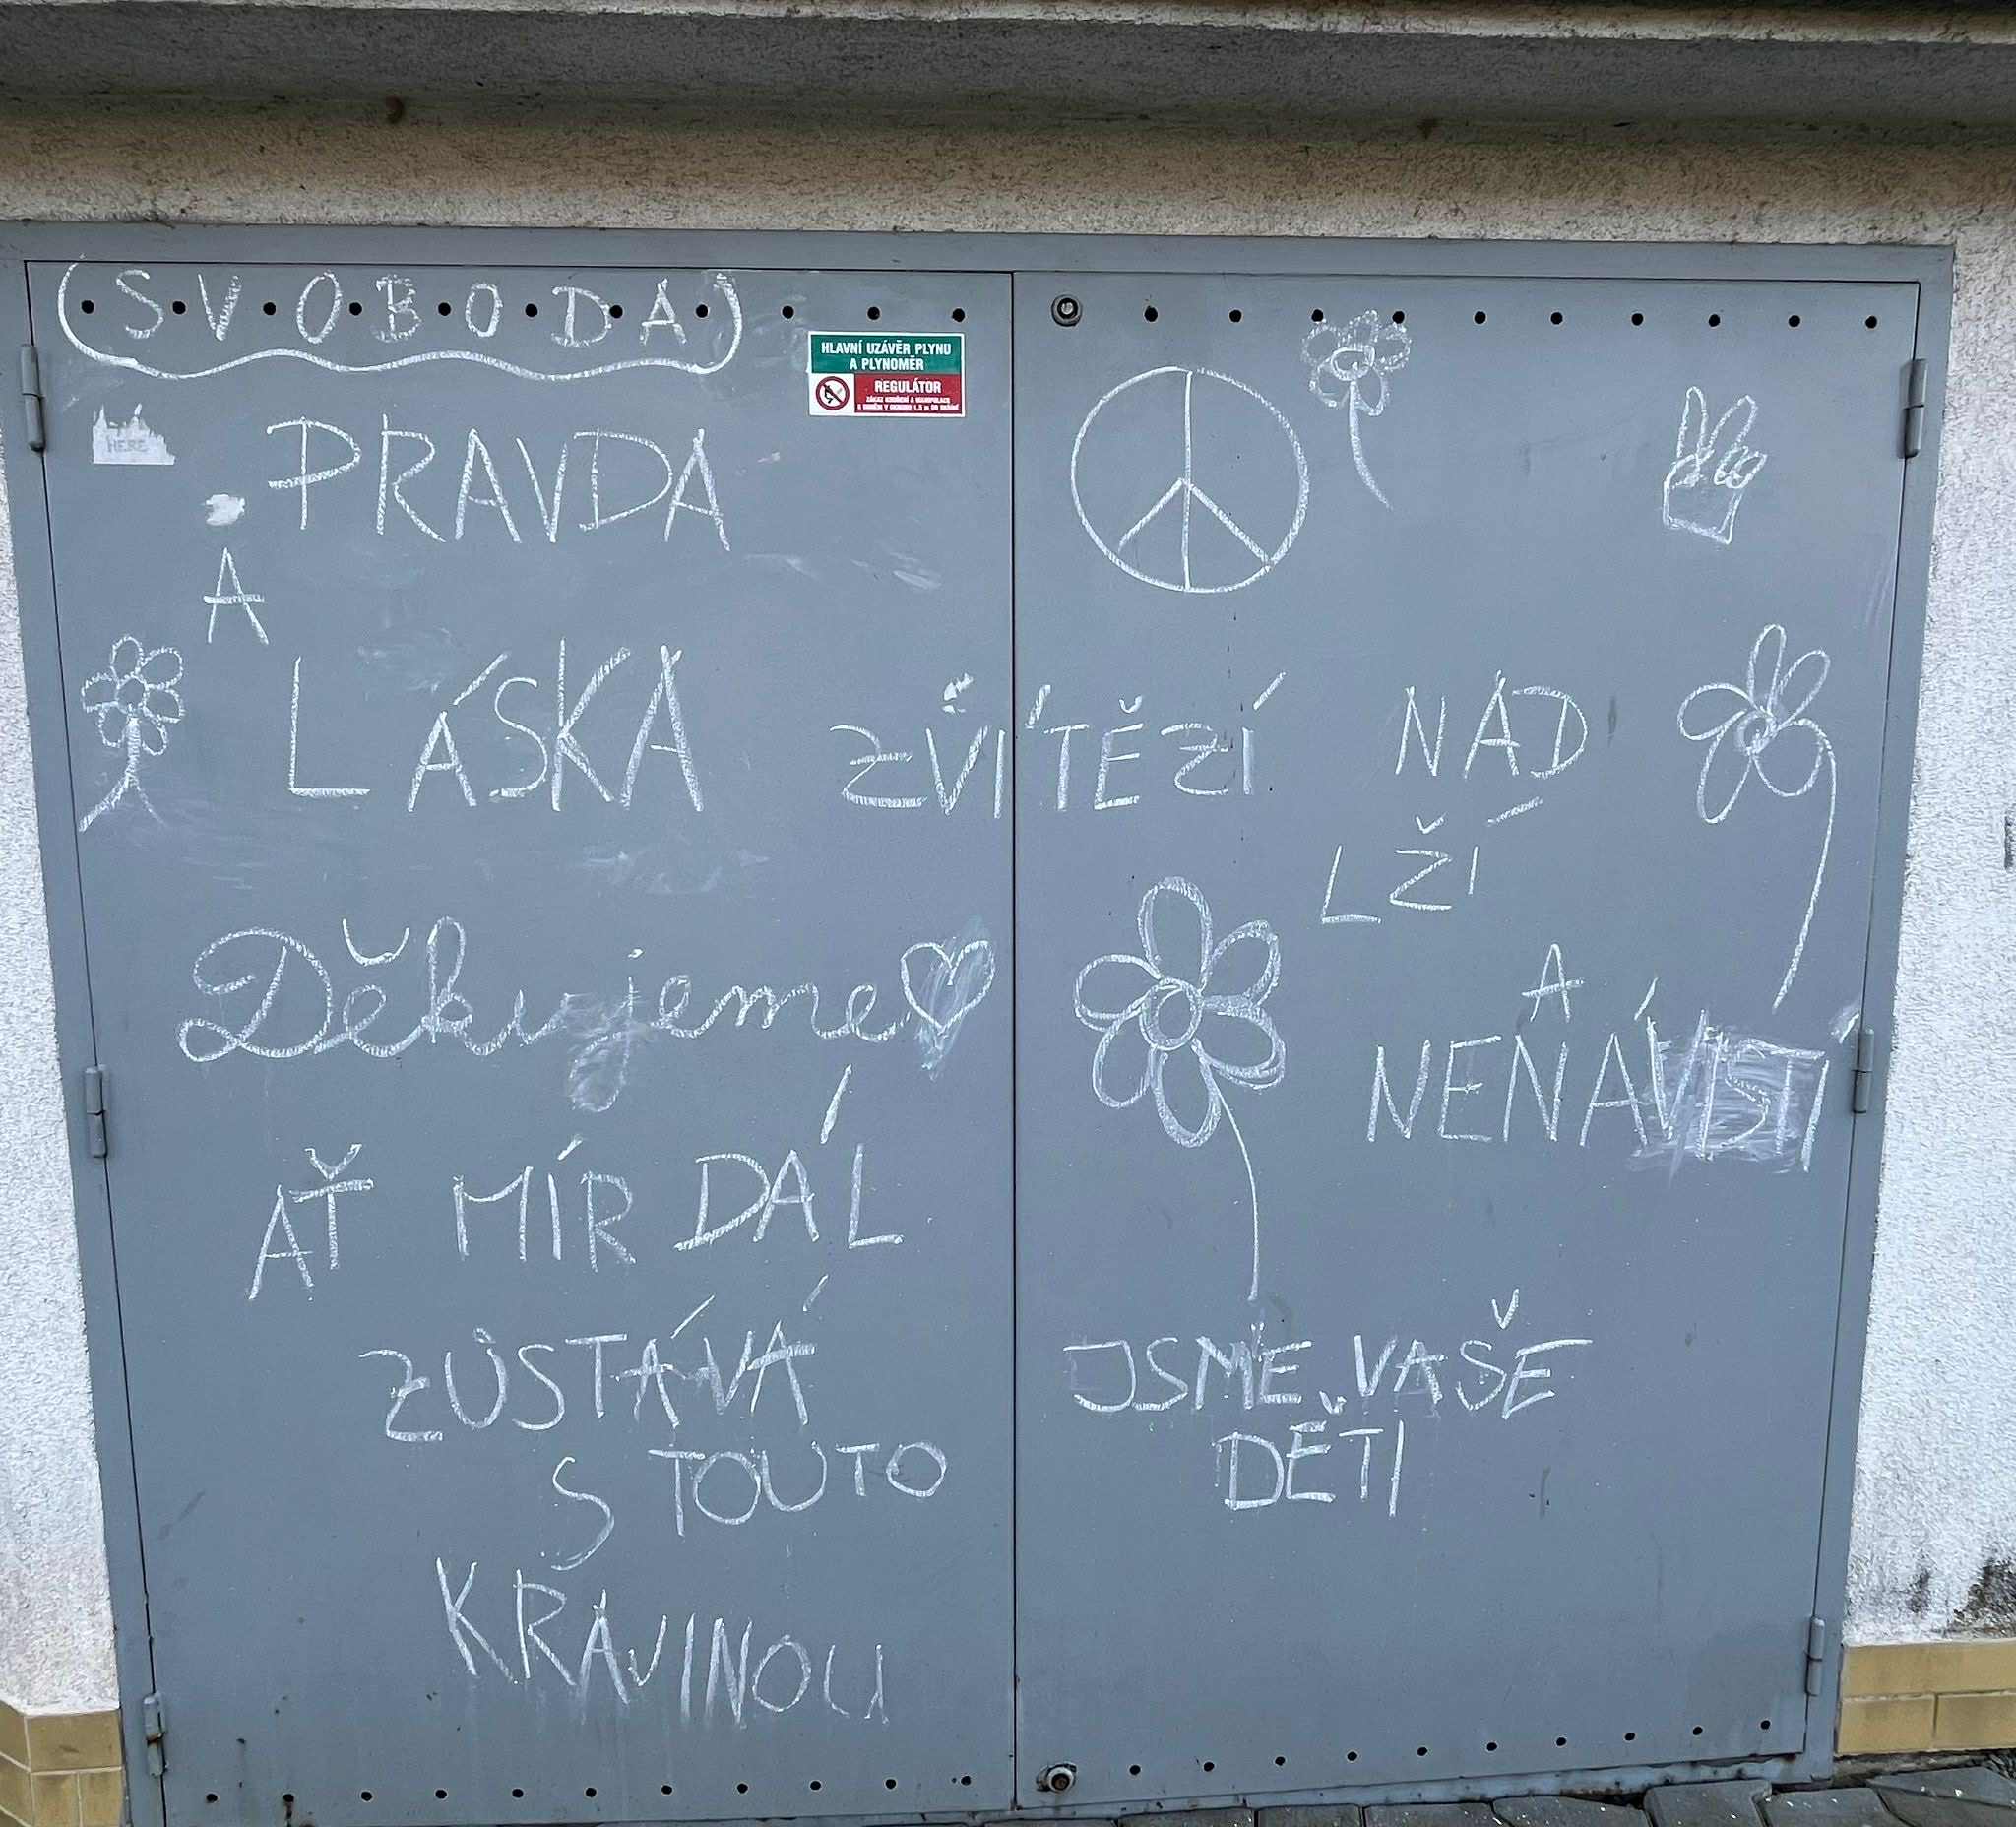 SVOBODA
HLAVNÍ UZÁVĚR PLYNU
A PLYNOMĚR
REGULÁTOR
HERE
PRAVDA
A
LÁSKA ZVÍTĚZÍ NAD
LŽÍ
A
NENÁVISTÍ
Děkujeme
AŤ MÍR DÁL
ZŮSTÁVÁ
S TOUTO
KRAJINOU
JSME VAŠE
DĚTI